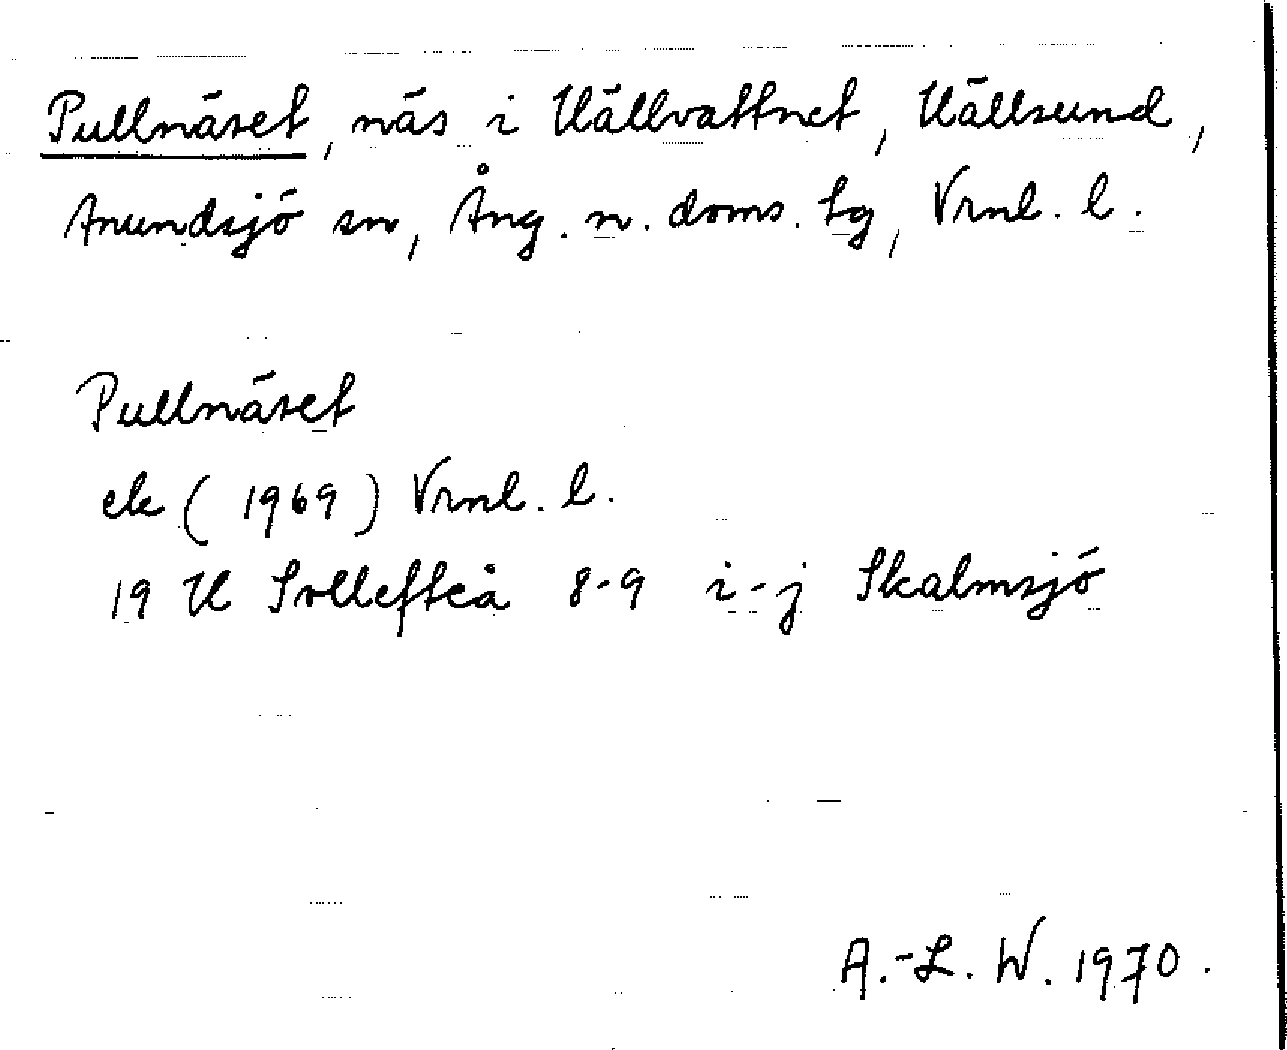 Pullnäset, näs i Hällvattnet, Hällsund,
Anundsjö sn, Ång. n. doms. tg, Vrnl. l.
Pullnäset
ek (1969) Vrnl. l.
19 H Sollefteå 8-9 i-j Skalmsjö
A.-L. W. 1970.